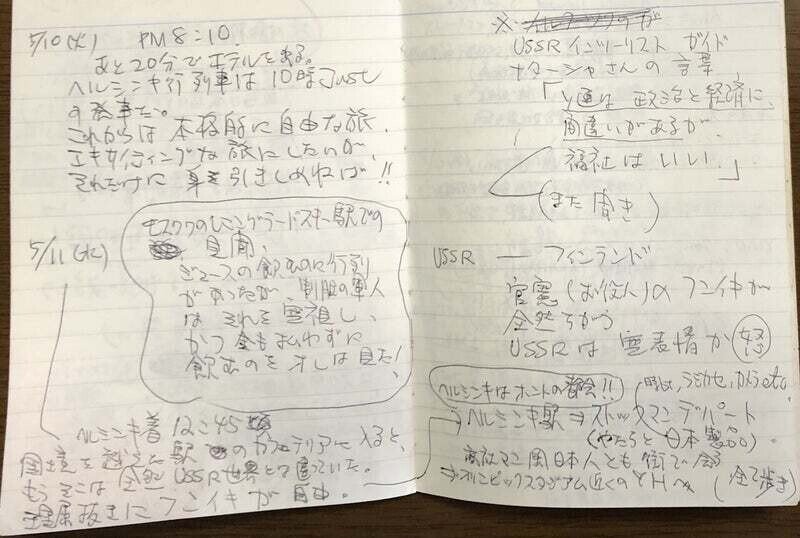 5/10(火) PM8:10.
あと20分でホテルを去る。
ヘルシンキ行列車は10時Just
の発車だ。
これからは本格的に自由な旅.
エキサイティングな旅にしたいが、
それだけに身を引きしめねば!!
5/11(水)
モスクワのレニングラードスキー駅での
見聞、
ジュースの飲むのに行列
があったが、制服の軍人
はそれを無視し、
かつ金も払わずに
飲むのをオレは見た!
ヘルシンキ着 12:45頃
国境を越えた駅のカフェテリアに入ると、
もうそこは全然USSR世界とは違っていた。
理屈抜きにフンイキが自由。
※
USSRインツーリスト ガイド
ナターシャさんの言葉
「y通は政治と経済に、
間違いがあるが、
福祉はいい.」
(また聞き)
USSR ― フィンランド
官憲(お役人)のフンイキが
全然ちがう
USSRは無表情か怒
ヘルシンキはホントの都会!!
時計, ラジカセ, カメラetc
→ヘルシンキ駅⇒ストックマンデパート
(やたらと日本製品)。
商社マン風日本人とも街で会う
⇒オリンピックスタジアム近くのYHへ (全て歩き)